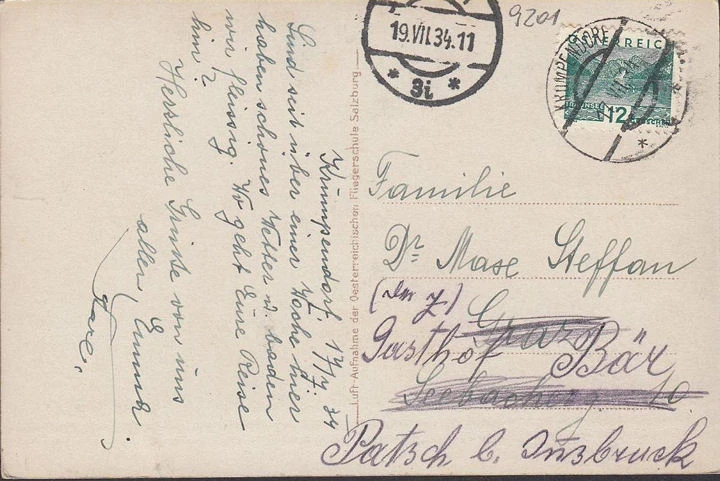 Krumpendorf. 17/7. 34
Sind seit über einer Woche hier
haben schönes Wetter u. baden
wir fleissig. Wo geht Eure Reise
hin?
Herzliche Grüße von uns
allen, Emma
19.VII.34.11
* 3i *
9201
KRUMPENDORF
ÖSTERREICH
12
Luft-Aufnahme der Oesterreichischen Fliegerschule Salzburg
Familie
Dr Max Steffan
Graz
Gasthof Bär
10
Patsch b. Insbruck